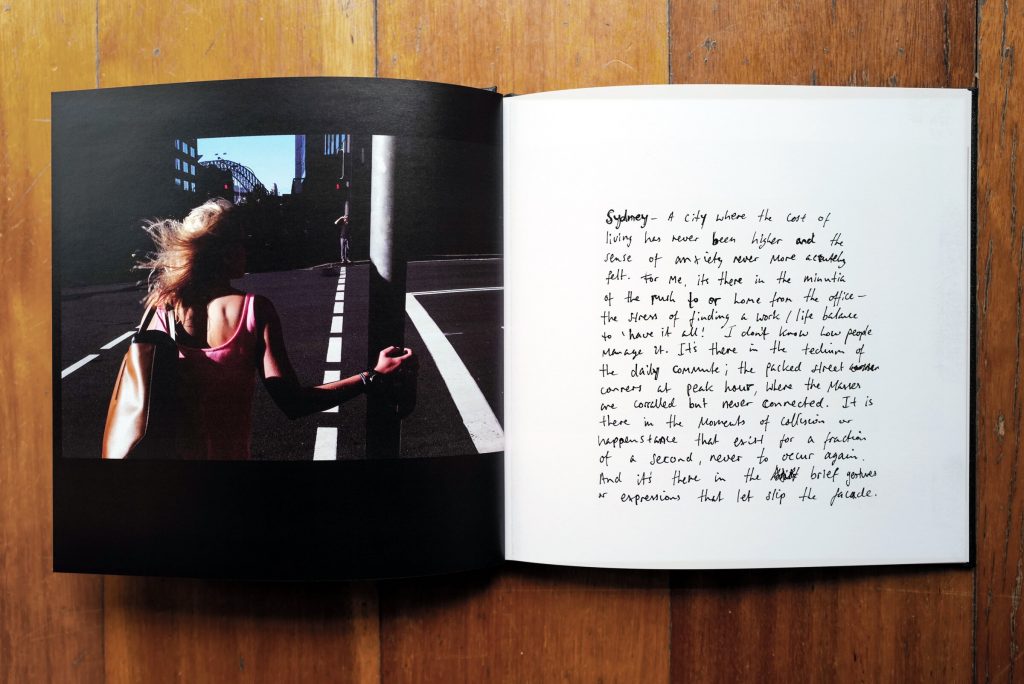 Sydney – A city where the cost of
living has never been higher and the
sense of anxiety never more acutely
felt. For me, its there in the minutia
of the push to or home from the office –
the stress of finding a work / life balance
to 'have it all! I don't know how people
manage it. It's there in the tedium of
the daily commute; the packed street
corners at peak hour, where the masses
are corralled but never connected. It is
there in the moments of collision or
happenstance that exist for a fraction
of a second, never to occur again.
And it's there in the brief gestures
or expressions that let slip the facade.